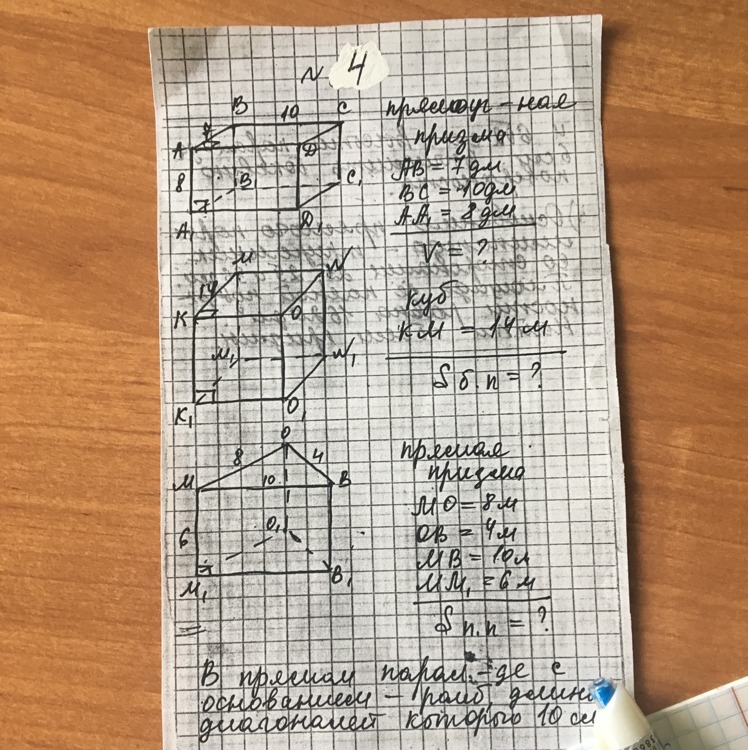 N 4
B 10 C
7
A D
8 B₁ C₁
A₁ D₁
прямоуг-ная
призма
AB = 7 дм
BC = 10 дм
AA₁ = 8 дм
V = ?
M N
14
K O
M₁ N₁
K₁ O₁
куб
KM = 14 м
S б.п = ?
O
8 4
M 10 B
6 O₁
M₁ B₁
прямая
призма
MO = 8 м
OB = 4 м
MB = 10 м
MM₁ = 6 м
S п.п = ?
В прямом парал-де с
основанием - ромб длина
диагоналей которого 10 см